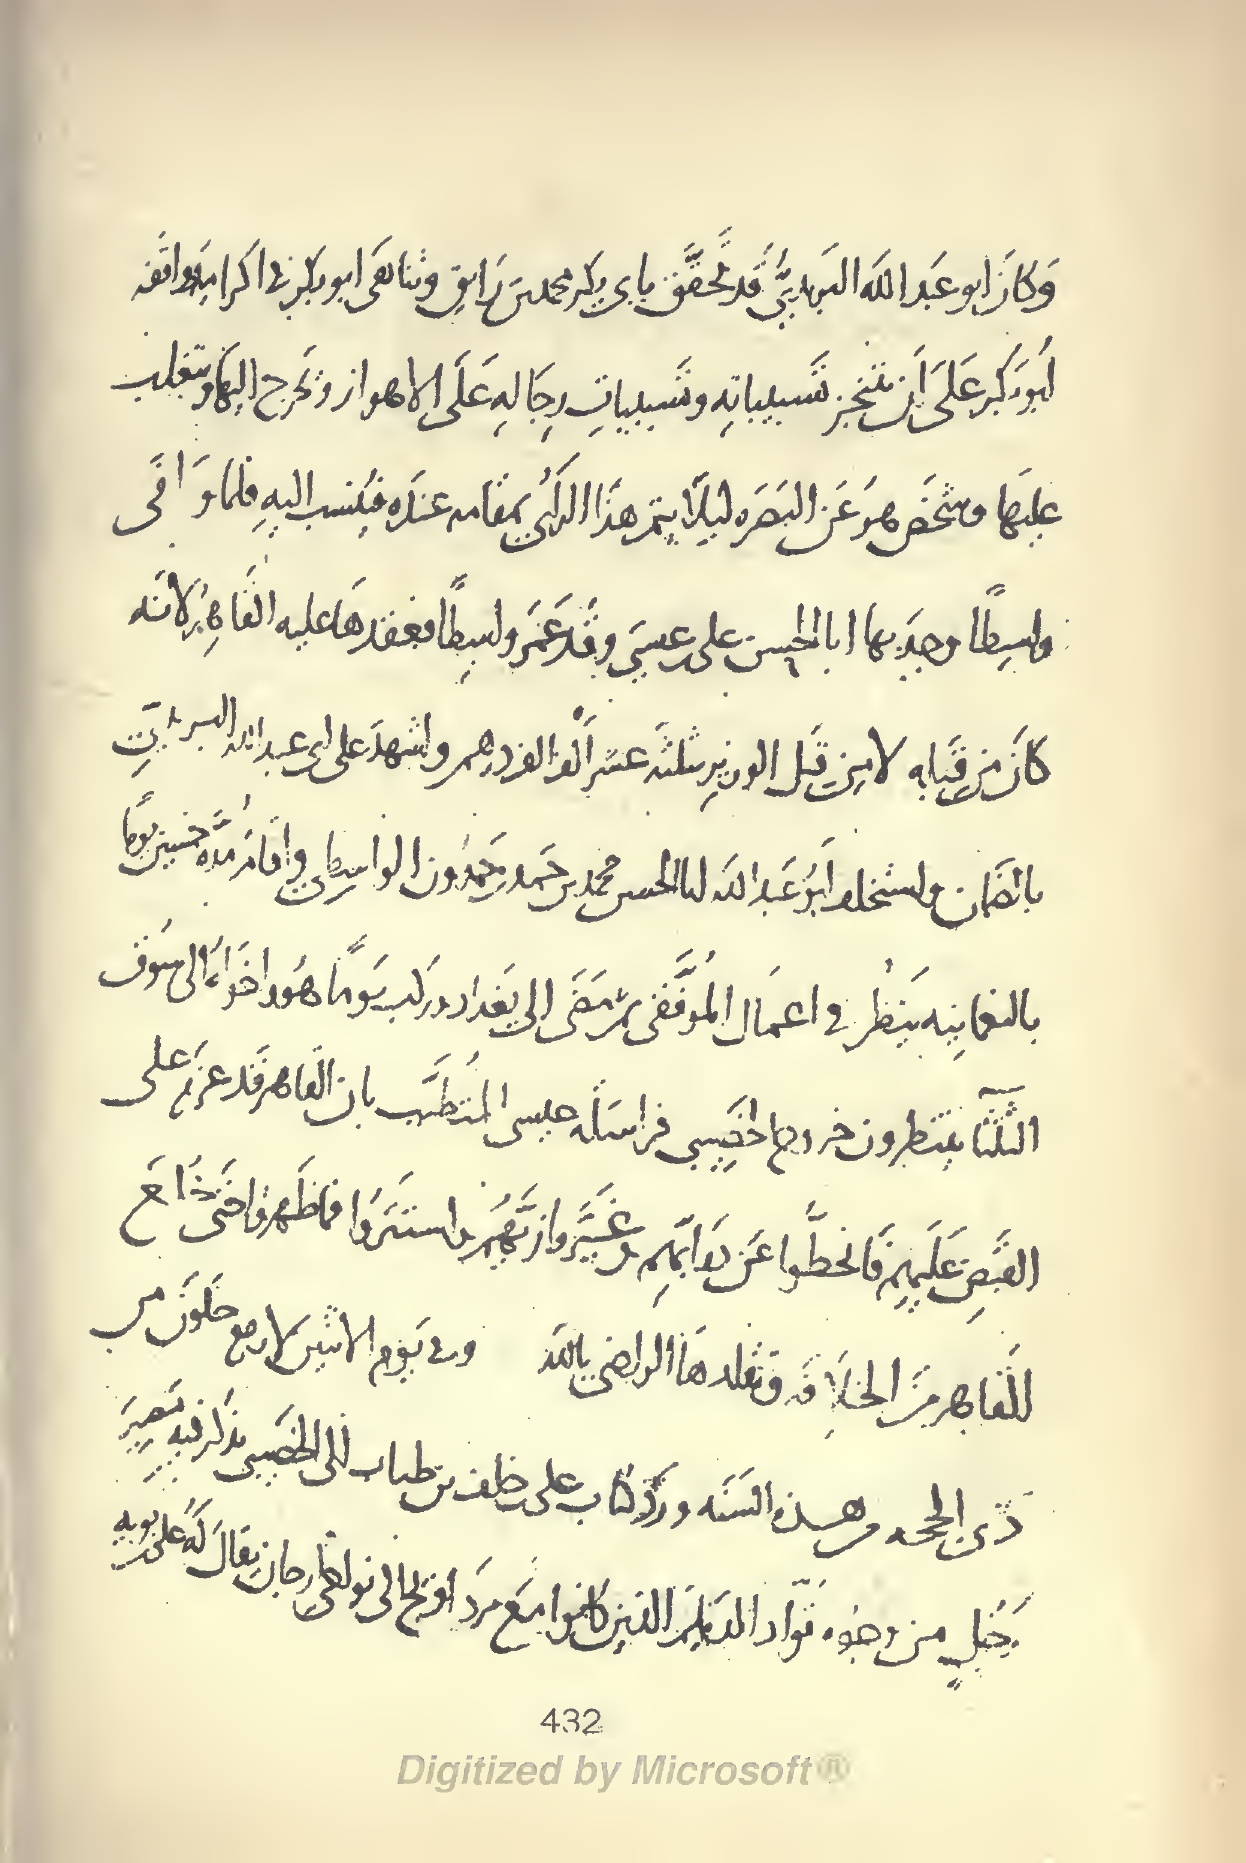 وكان ابو عبد الله البريدي قد تحقق بابي بكر محمد بن رايق وتناهى ابو بكر في اكرامه ووافقه
ابو بكر على ان تنجز تسبيباته وتسبيبات رجاله على الاهواز وتخرج اليها وتتغلب
عليها وشخص هو عن البصره ليلا يتم هذا بمقامه عنده فينسب اليه فلما وافى
واسطا وجد بها ابا الحسن علي بن عيسى وقد عمر واسطا فعقدها عليه القاهر لانه
كان من قبله لا من قبل الوزير بثلثه عشر الف الف درهم واشهد على ابي عبد الله البريدي
بالضمان واستخلف ابو عبد الله ابا الحسن محمد بن حمد بن حمدون الواسطي واقام مده خمسين يوما
بالنعمانيه ينظر في اعمال الموفقي ثم مضى الى بغداد وركب يوما هو واخواه الى سوق
الثلثا ينتظرون خروج الخصيبي فراسله عيسى المتطبب بان القاهر قد عزم على
القبض عليهم فانحطوا عن دوابهم وغيروا زيهم واستتروا فما ظهروا حتى خلع
القاهر من الخلافه وتقلدها الراضي بالله وفي يوم الاثنين لاربع خلون من
ذي الحجه من هذه السنه ورد كتاب علي بن خلف بن طياب الى الخصيبي يذكر فيه مصير
رجل من وجوه قواد الديلم الذين كانوا مع مرداويج الى نواحي ارجان يقال له علي بن بويه
432
Digitized by Microsoft®